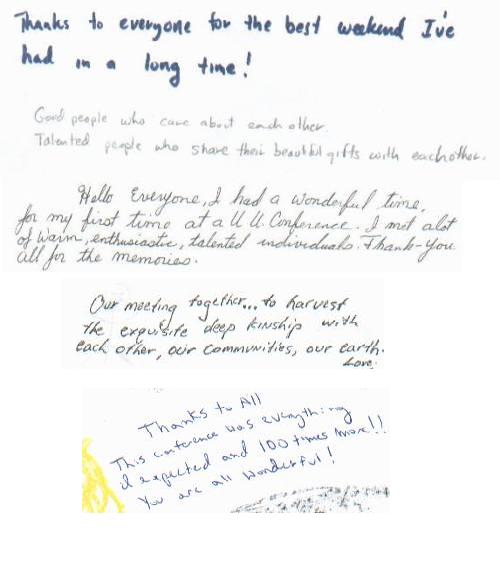 Thanks to everyone for the best weekend I've
had in a long time!
Good people who care about each other.
Talented people who share their beautiful gifts with eachother.
Hello Everyone, I had a wonderful time,
for my first time at a U.U. Conference. I met alot
of warm, enthusiastic, talented individuals. Thank-you
all for the memories.
Our meeting together... to harvest
the exquisite deep kinship with
each other, our communities, our earth.
Love.
Thanks to All
This conference was everything
I expected and 100 times more!!
You are all wonderful!